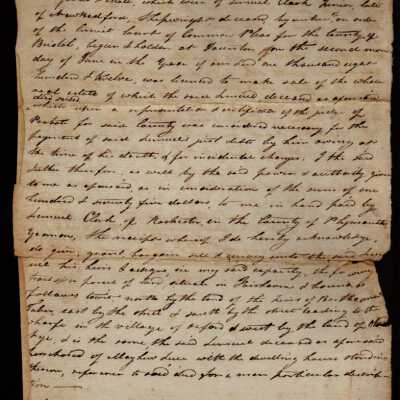 of New Bedford, Shipwright deceased by virtue of an order
of the Circuit Court of Common Pleas for the County of
Bristol, begun & holden at Taunton on the second mon-
day of June in the Year of our Lord one thousand eight
hundred & twelve, was licenced to make sale of the whole
real estate of which the said Lemuel deceased as aforesaid
died seized
when a representation & certificate of the judge of
Probate for said County was considered necessary for the
payment of said Lemuel's just debts by him owing at
the time of his death & for incidental charges. I the said
therefore, as well by the said power & authority given
to me as aforesaid, as in consideration of the sum of one
hundred & seventy five dollars, to me in hand paid by
Lemuel Clark of Rochester, in the County of Plymouth
Yeoman, the receipt whereof I do hereby acknowledge,
do give, grant, bargain sell & convey unto the said Lem-
uel his heirs & assigns, in my said capacity, the following
tract or parcel of land, situate in Fairhaven & bounded as
follows to wit north by the land of the heirs of Bartholomew
Taber, east by the street & south by the street leading to the
wharfs in the village of Oxford & west by the land of
& is the same the said Lemuel deceased as aforesaid
purchased of with the dwelling house standing
thereon, reference to said deed for a more particular descrip-
tion